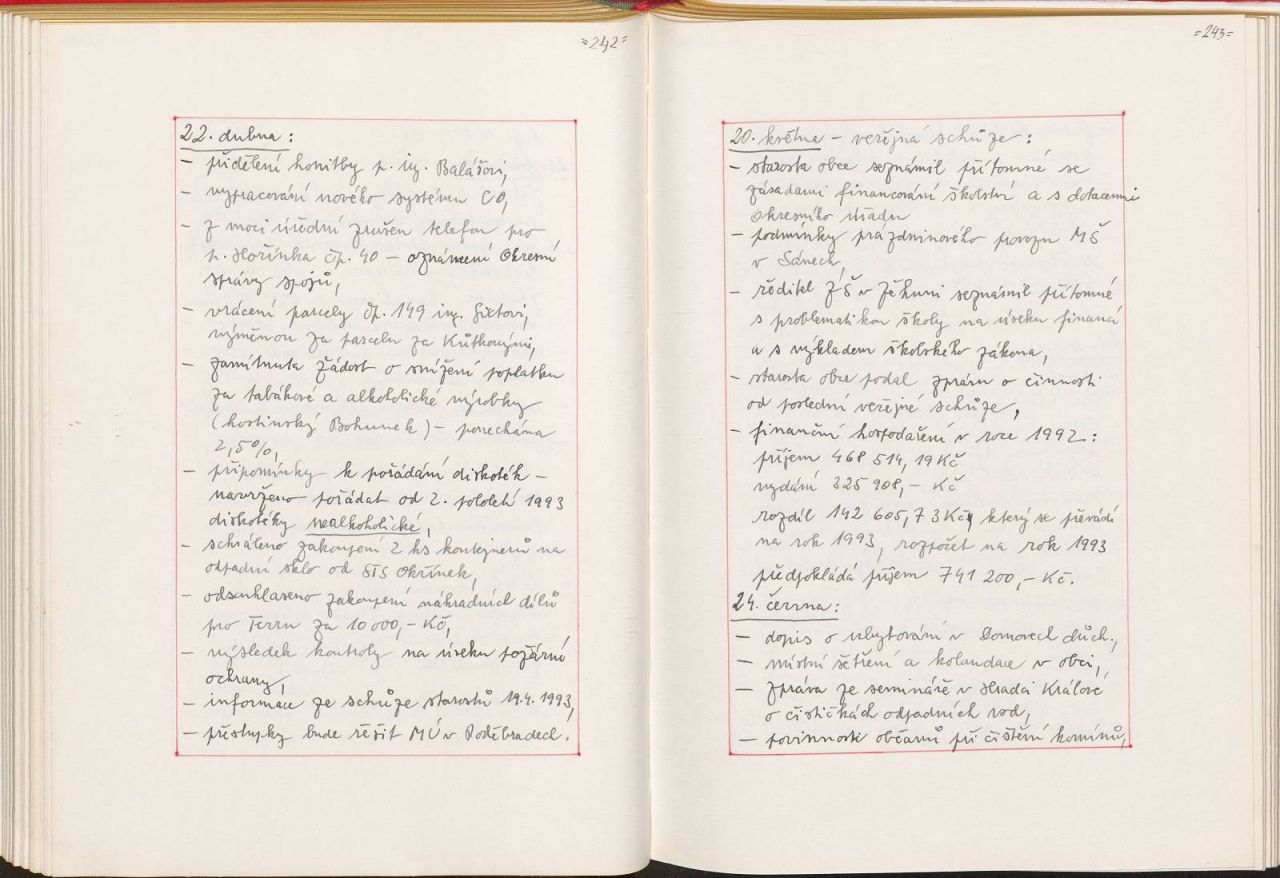 =242=
22. dubna:
- přidělení honitby p. ing. Balášovi,
- vypracování nového systému CO,
- z moci úřední zrušen telefon pro
p. Hořínka čp. 40 - oznámení Okresní
správy spojů,
- vrácení parcely čp. 149 ing. Sixtovi,
výměnou za parcelu za Kůtkovými,
- zamítnuta žádost o snížení poplatku
za tabákové a alkoholické výrobky
(hostinský Bohunek) - ponechána
2,5%,
- připomínky k pořádání diskoték -
navrženo pořádat od 2. pololetí 1993
diskotéky nealkoholické,
- schváleno zakoupení 2 ks kontejnerů na
odpadní sklo od STS Okřínek,
- odsouhlaseno zakoupení náhradních dílů
pro Terru za 10 000,- Kč,
- výsledek kontroly na úseku požární
ochrany,
- informace ze schůze starostů 19.4. 1993,
- přestupky bude řešit MÚ v Poděbradech.
=243=
20. května - veřejná schůze:
- starosta obce seznámil přítomné se
zásadami financování školství a s dotacemi
Okresního úřadu
- podmínky prázdninového provozu MŠ
v Sánech,
- ředitel ZŠ v Žehuni seznámil přítomné
s problematikou školy na úseku financí
a s výkladem školského zákona,
- starosta obce podal zprávu o činnosti
od poslední veřejné schůze,
- finanční hospodaření v roce 1992:
příjem 468 514, 19 Kč
vydání 325 908,- Kč
rozdíl 142 605,73 Kč, který se převádí
na rok 1993, rozpočet na rok 1993
předpokládá příjem 741 200,- Kč.
24. června:
- dopis o ubytování v Domovech důch.,
- místní šetření a kolaudace v obci,
- zpráva ze semináře v Hradci Králové
o čističkách odpadních vod,
- povinnosti občanů při čištění komínů,